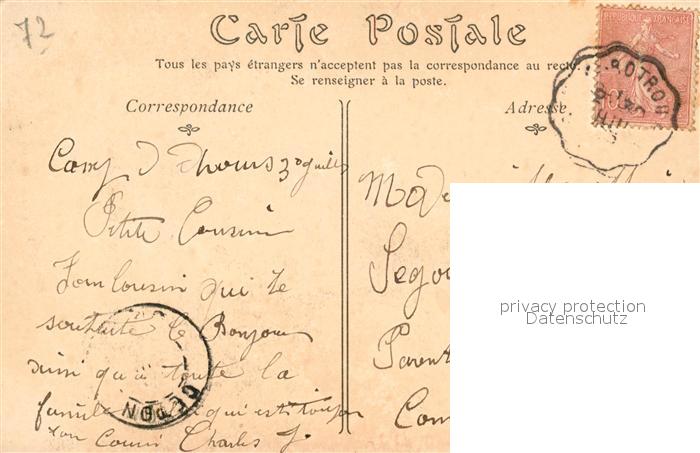 72
Carte Postale
Tous les pays étrangers n'acceptent pas la correspondance au recto.
Se renseigner à la poste.
Correspondance
Adresse
REPUBLIQUE FRANÇAISE
Camp
Petite Cousin
Ton Cousin qui te
souhaite le Bonjour
ainsi qu'a toute la
famille qui est toujour
ton cousin Charles J.
Segou
Parent
Com
privacy protection
Datenschutz